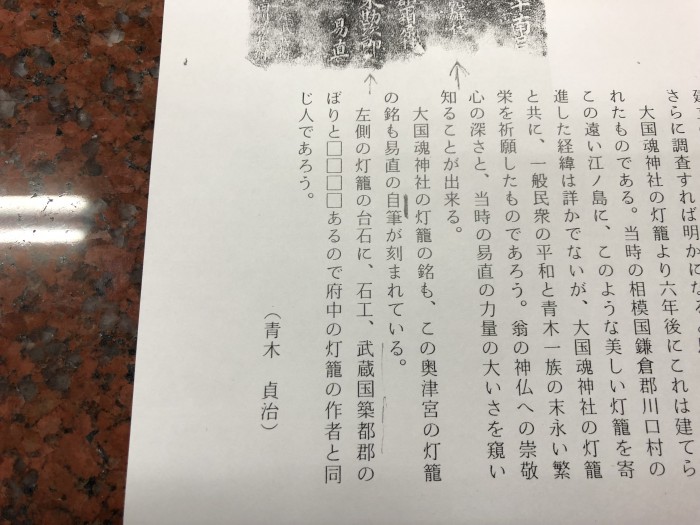 さらに調査すれば明かになる
大国魂神社の灯籠より六年後にこれは建てら
れたものである。当時の相模国鎌倉郡川口村の
この遠い江ノ島に、このような美しい灯籠を寄
進した経緯は詳かでないが、大国魂神社の灯籠
と共に、一般民衆の平和と青木一族の末永い繁
栄を祈願したものであろう。翁の神仏への崇敬
心の深さと、当時の易直の力量の大いさを窺い
知ることが出来る。
大国魂神社の灯籠の銘も、この奥津宮の灯籠
の銘も易直の自筆が刻まれている。
左側の灯籠の台石に、石工、武蔵国築都郡の
ぼりと□□□□あるので府中の灯籠の作者と同
じ人であろう。
（青木 貞治）